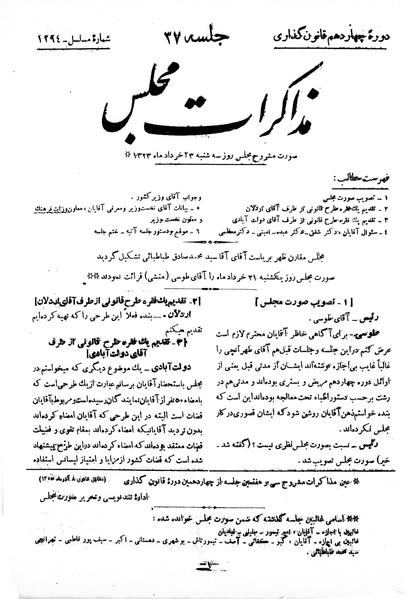 دورهٔ چهاردهم قانون‌گذاری
جلسه ۳۷
شمارهٔ مسلسل - ۱۲۹۴
مذاکرات مجلس
صورت مشروح مجلس روز سه شنبه ۲۳ خرداد ماه ۱۳۲۳
فهرست مطالب:
۱ - تصویب صورت مجلس
۲ - تقدیم یک فقره طرح قانونی از طرف آقای اردلان
۳ - تقدیم یک فقره طرح قانونی از طرف آقای دولت آبادی
۴ - سئوال آقایان: دکتر شفق - دکتر عبده - امینی - دکتر معظمی
وجواب آقای وزیر کشور.
۵ - بیانات آقای نخست‌وزیر و معرفی آقایان: معاون وزارت فرهنگ
و معاون نخست وزیر
۶ - موقع و دستور جلسه آتیه - ختم جلسه
مجلس مقارن ظهر بریاست آقای آسید محمد صادق طباطبائی تشکیل گردید
صورت مجلس روز یکشنبه ۲۱ خرداد ماه را آقای طوسی (منشی) قرائت نمودند
[۱ - تصویب صورت مجلس]
رئیس - آقای طوسی.
طوسی - برای آگاهی خاطر آقایان محترم لازم است
عرض کنم در این جلسه و جلسات قبل هم آقای طهرانچی را
غالباً غایب بی‌اجازه نوشته‌اند ایشان از مدتی قبل یعنی از
اوائل دوره چهاردهم مریض و بستری بوده‌اند و مدتی هم در
رشت بر حسب دستور اطباء تحت معالجه بوده‌اند این است که
بنده خواستم ذهن آقایان روشن شود که ایشان قصوری در کار
مجلس نکرده‌اند.
رئیس - نسبت بصورت مجلس نظری نیست؟ (گفته شد -
خیر) صورت مجلس تصویب شد.
[۲- تقدیم یک فقره طرح قانونی از طرف آقای اردلان]
اردلان - بنده فعلا این طرحی را که تهیه کرده‌ایم
تقدیم میکنم
[۳- تقدیم یک فقره طرح قانونی از طرف
آقای دولت آبادی]
دولت آبادی - یک موضوع دیگری که میخواستم در
مجلس باستحضار آقایان برسانم عبارت از یک طرحی است که
بامضاء ۵۰ نفر از آقایان نمایندگان رسیده است و مربوط بآقایان
قضات است البته در این طرحی که آقایان امضاء کرده‌اند
بدون تردید آقایانیکه امضاء کرده‌اند بمقام تقوی و فضیلت
قضات معتقد بوده‌اند که امضاء کرده‌اند در این طرح پیشنهاد
شده است که قضات کشور از مزایا و امتیاز لیسانس استفاده
عین مذاکرات مشروح سی و هفتمین جلسه از چهاردهمین دوره قانون گذاری
اداره تند نویسی و تحریر صورت مجلس
اسامی غائبین جلسه گذشته که ضمن صورت مجلس خوانده شده: